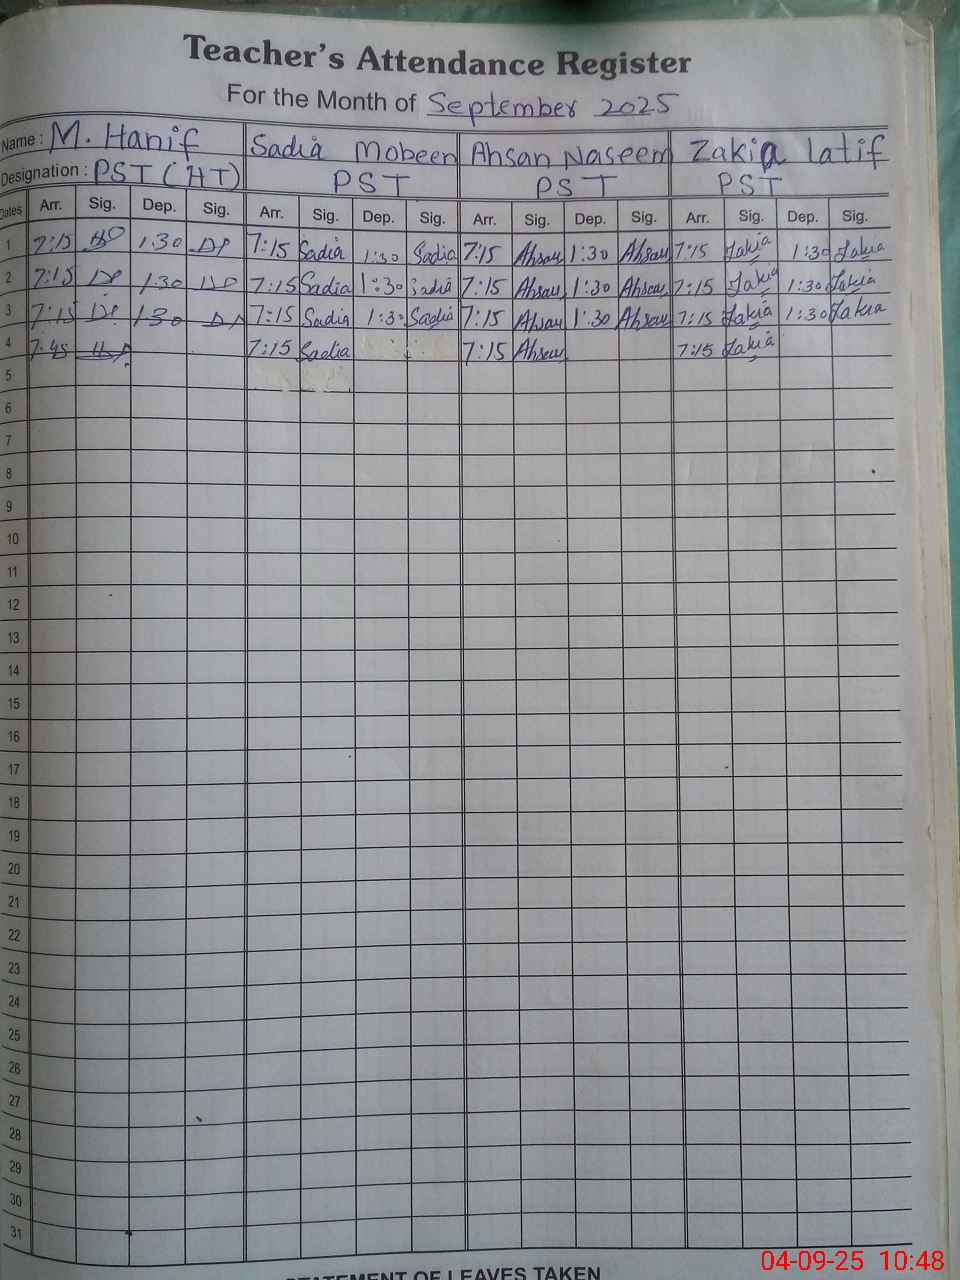 Teacher's Attendance Register
For the Month of September 2025
Name : M. Hanif Sadia Mobeen Ahsan Naseem Zakia Latif
Designation : PST (HT) PST PST PST
Dates Arr. Sig. Dep. Sig. Arr. Sig. Dep. Sig. Arr. Sig. Dep. Sig. Arr. Sig. Dep. Sig.
1 7:15 1:30 7:15 Sadia 1:30 Sadia 7:15 Ahsan 1:30 Ahsan 7:15 Zakia 1:30 Zakia
2 7:15 1:30 7:15 Sadia 1:30 Sadia 7:15 Ahsan 1:30 Ahsan 7:15 Zakia 1:30 Zakia
3 7:15 1:30 7:15 Sadia 1:30 Sadia 7:15 Ahsan 1:30 Ahsan 7:15 Zakia 1:30 Zakia
4 7:45 7:15 Sadia 7:15 Ahsan 7:15 Zakia
5
6
7
8
9
10
11
12
13
14
15
16
17
18
19
20
21
22
23
24
25
26
27
28
29
30
31
STATEMENT OF LEAVES TAKEN
04-09-25 10:48